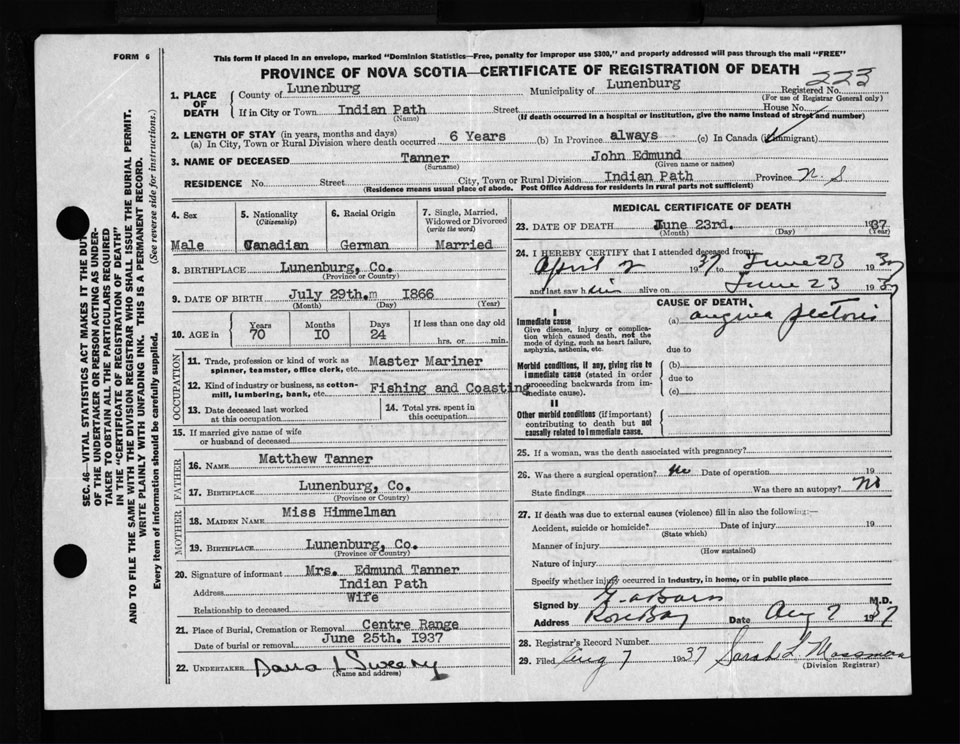 FORM 6
This form if placed in an envelope, marked "Dominion Statistics—Free, penalty for improper use $300," and properly addressed will pass through the mail "FREE"
PROVINCE OF NOVA SCOTIA—CERTIFICATE OF REGISTRATION OF DEATH
223
SEC. 46—VITAL STATISTICS ACT MAKES IT THE DUTY
OF THE UNDERTAKER OR PERSON ACTING AS UNDER-
TAKER TO OBTAIN ALL THE PARTICULARS REQUIRED
IN THE "CERTIFICATE OF REGISTRATION OF DEATH"
AND TO FILE THE SAME WITH THE DIVISION REGISTRAR WHO SHALL ISSUE THE BURIAL PERMIT.
WRITE PLAINLY WITH UNFADING INK. THIS IS A PERMANENT RECORD.
Every item of information should be carefully supplied. (See reverse side for instructions.)
1. PLACE OF DEATH
County of Lunenburg Municipality of Lunenburg Registered No.
(For use of Registrar General only)
If in City or Town Indian Path Street House No.
(Name) (If death occurred in a hospital or institution, give the name instead of street and number)
2. LENGTH OF STAY (in years, months and days)
(a) In City, Town or Rural Division where death occurred 6 Years (b) In Province always (c) In Canada (if immigrant)
3. NAME OF DECEASED Tanner John Edmund
(Surname) (Given name or names)
RESIDENCE No. Street City, Town or Rural Division Indian Path Province N. S
(Residence means usual place of abode. Post Office Address for residents in rural parts not sufficient)
4. Sex
Male
5. Nationality
(Citizenship)
Canadian
6. Racial Origin
German
7. Single, Married,
Widowed or Divorced
(write the word)
Married
8. BIRTHPLACE Lunenburg, Co.
(Province or Country)
9. DATE OF BIRTH July 29th.m I866
(Month) (Day) (Year)
10. AGE in
Years
70
Months
I0
Days
24
If less than one day old
hrs. or min.
OCCUPATION
11. Trade, profession or kind of work as
spinner, teamster, office clerk, etc. Master Mariner
12. Kind of industry or business, as cotton-
mill, lumbering, bank, etc. Fishing and Coasting
13. Date deceased last worked
at this occupation
14. Total yrs. spent in
this occupation
15. If married give name of wife
or husband of deceased
FATHER
16. NAME Matthew Tanner
17. BIRTHPLACE Lunenburg, Co.
(Province or Country)
MOTHER
18. MAIDEN NAME Miss Himmelman
19. BIRTHPLACE Lunenburg, Co.
(Province or Country)
20. Signature of informant Mrs. Edmund Tanner
Address Indian Path
Relationship to deceased Wife
21. Place of Burial, Cremation or Removal Centre Range
Date of burial or removal June 25th. I937
22. UNDERTAKER
(Name and address)
MEDICAL CERTIFICATE OF DEATH
23. DATE OF DEATH June 23rd. 1937
(Month) (Day) (Year)
24. I HEREBY CERTIFY that I attended deceased from:
April 2 1937 to June 23 1937
and last saw him alive on June 23 1937
CAUSE OF DEATH
I
Immediate cause
Give disease, injury or complica-
tion which caused death, not the
mode of dying, such as heart failure,
asphyxia, asthenia, etc.
(a) angina pectoris
due to
Morbid conditions, if any, giving rise to
immediate cause (stated in order
proceeding backwards from im-
mediate cause).
(b)
due to
(c)
II
Other morbid conditions (if important)
contributing to death but not
causally related to immediate cause.
25. If a woman, was the death associated with pregnancy?
26. Was there a surgical operation? No Date of operation 19
State findings Was there an autopsy? No
27. If death was due to external causes (violence) fill in also the following:—
Accident, suicide or homicide? Date of injury 19
(State which)
Manner of injury
(How sustained)
Nature of injury
Specify whether injury occurred in industry, in home, or in public place
Signed by M.D.
Address Rose Bay Date Aug 7 1937
28. Registrar's Record Number
29. Filed Aug 7 1937 Sarah L. Mossman
(Division Registrar)